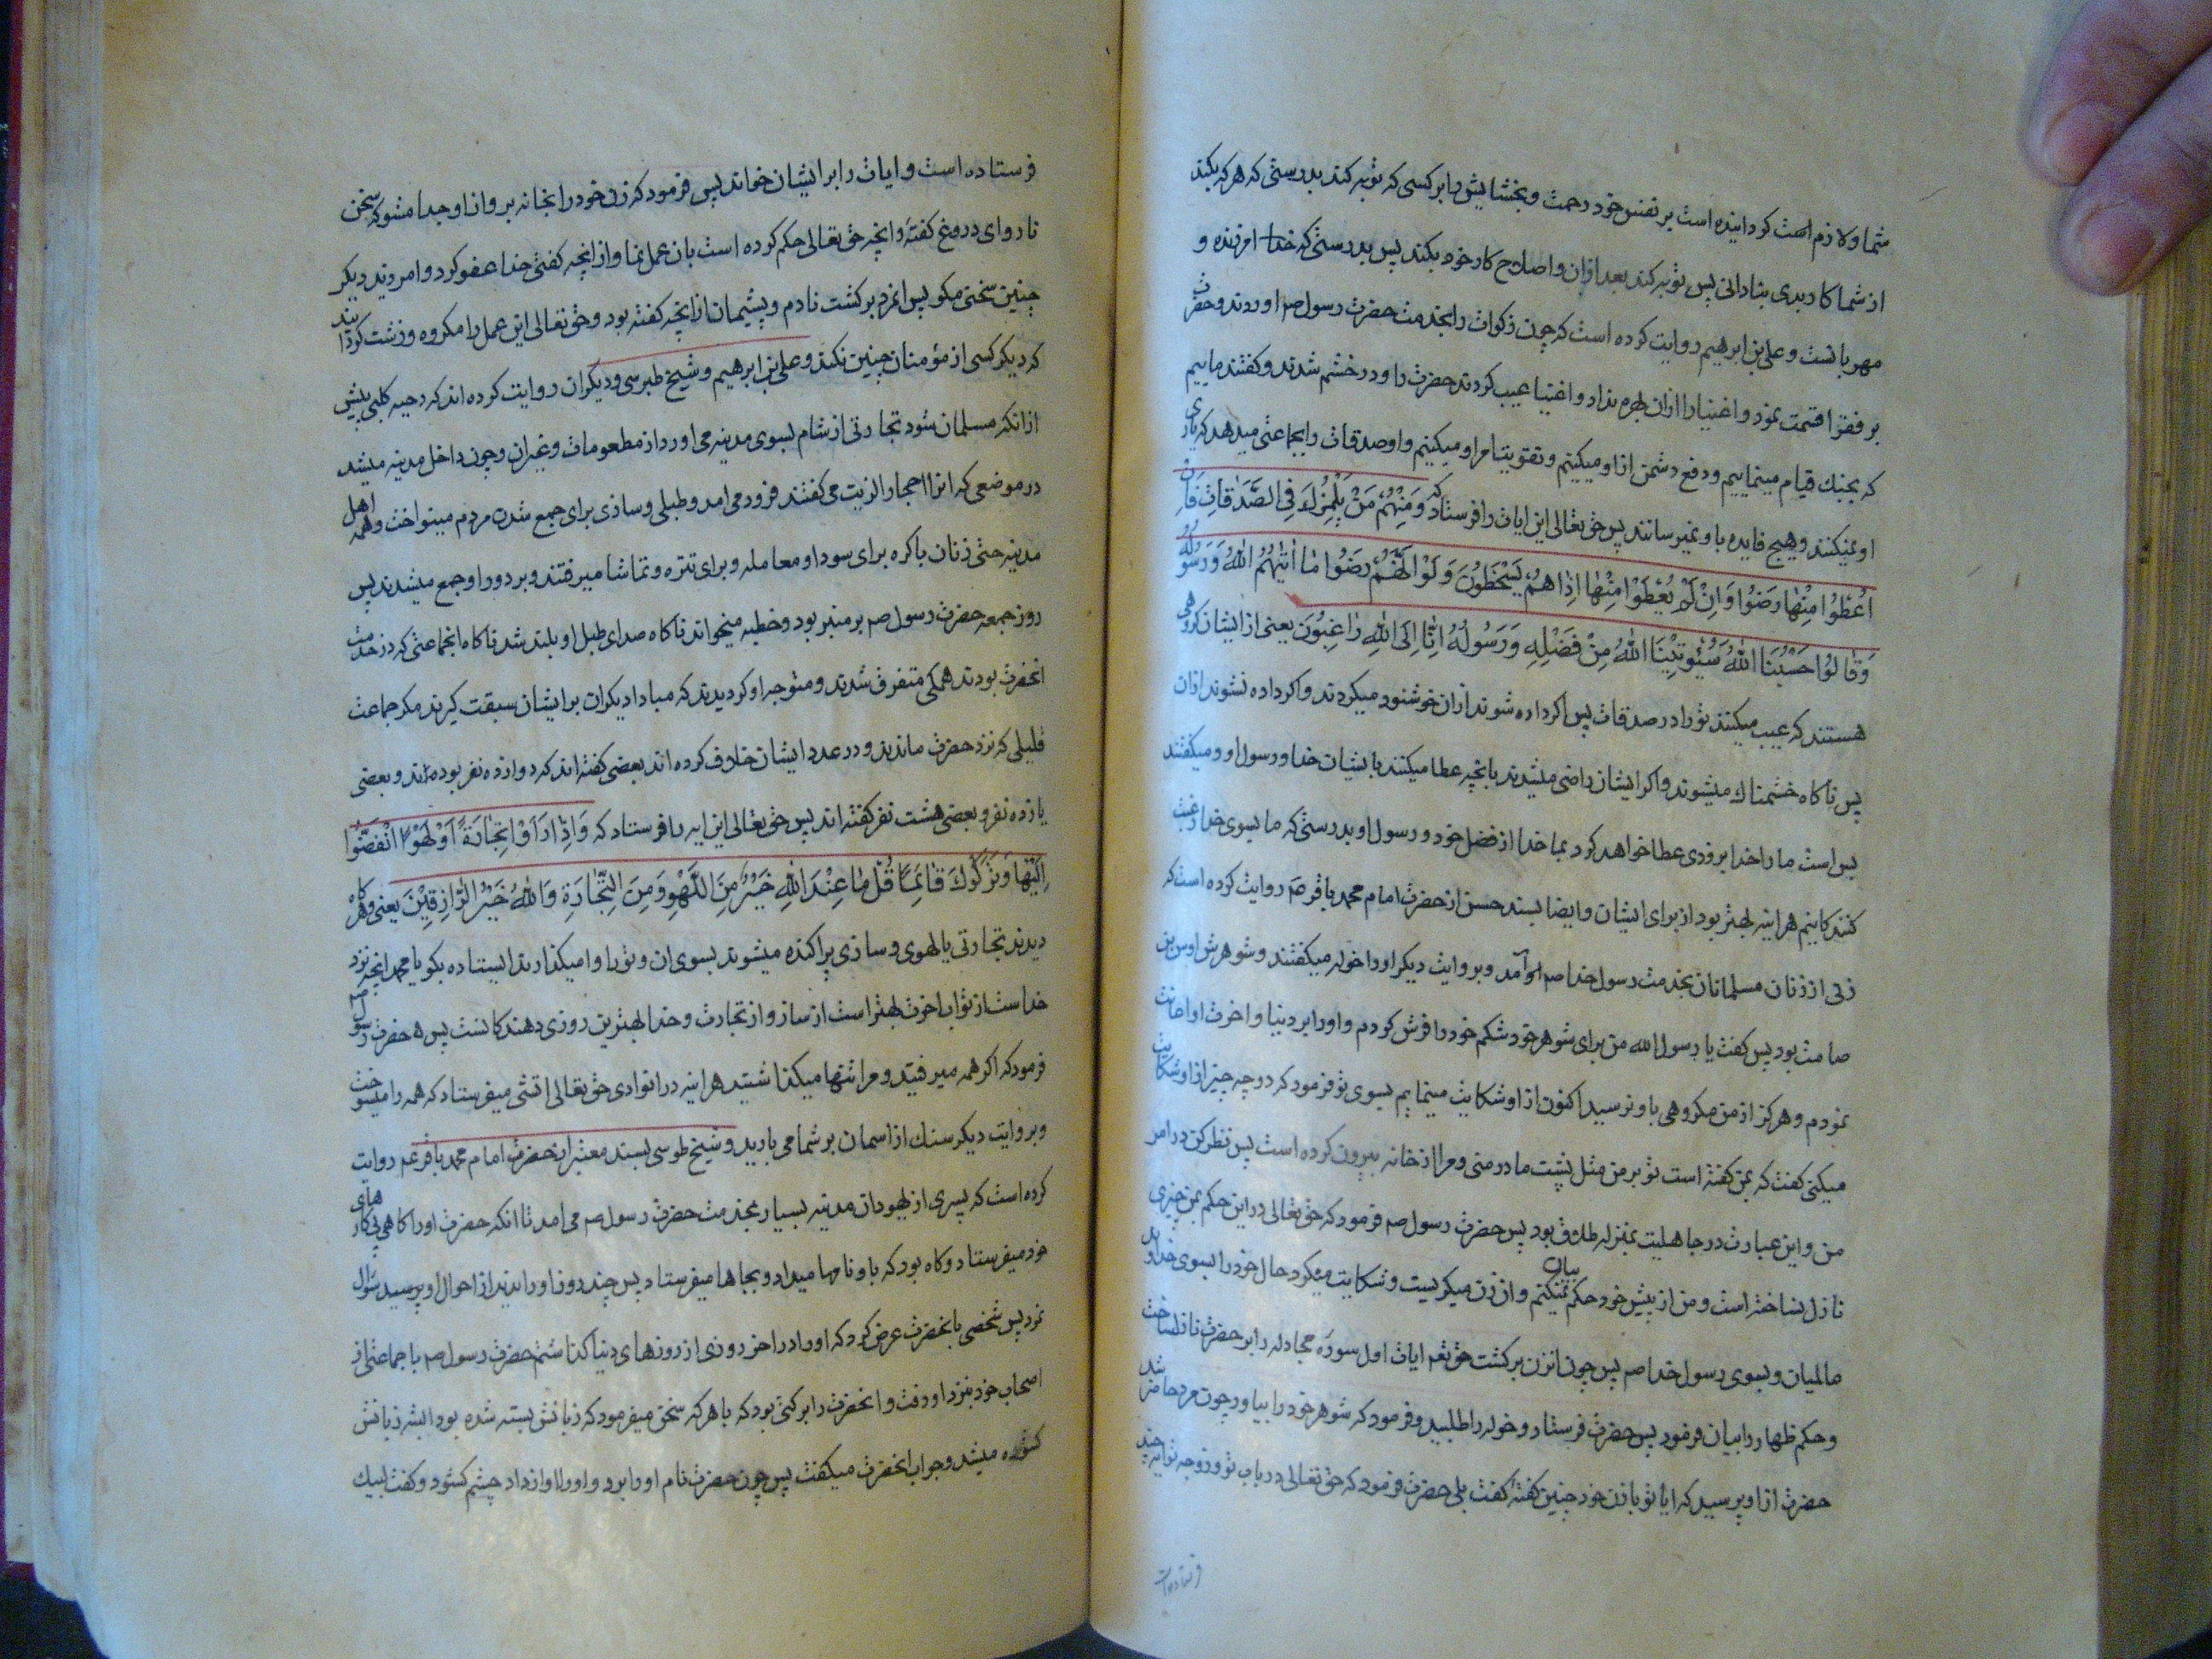 شما و لازم است کردانیده است بر نفس خود رحمت و بخشایش را بر کسی که توبه کند بدرستی که هر که بکند
از شما کار بدی بنادانی پس توبه کند بعد از ان و اصلاح کار خود بکند پس بدرستی که خدا امرزنده و
مهربانست و علی بن ابرهیم روایت کرده است که چون زکوات را بخدمت حضرت رسول صم اوردند و حضرت
بر فقرا قسمت نمود و اغنیا را ازان بهره نداد و اغنیا عیب کردند حضرت را و در خشم شدند و کفتند ماییم
که بجنك قیام مینماییم و دفع دشمن از او میکنیم و تقویت امر او میکنیم و او صدقات را بجماعتی میدهد که یاری
او نمیکنند و هیچ فایده باو نمیرسانند پس حق تعالی این ایات را فرستاد که وَمِنْهُمْ مَنْ یَلْمِزُكَ فِی الصَّدَقَاتِ فَاِنْ
اُعْطُوا مِنْهَا رَضُوا وَاِنْ لَمْ یُعْطَوْا مِنْهَا اِذَا هُمْ یَسْخَطُونَ وَلَوْ اَنَّهُمْ رَضُوا مَا اٰتَیٰهُمُ اللّٰهُ وَرَسُولُهُ
وَقَالُوا حَسْبُنَا اللّٰهُ سَیُؤْتِیْنَا اللّٰهُ مِنْ فَضْلِهِ وَرَسُولُهُ اِنَّا اِلَی اللّٰهِ رَاغِبُونَ یعنی از ایشان کروهی
هستند که عیب میکنند تو را در صدقات پس اکر داده شوند ازان خوشنود میکردند و اکر داده نشوند ازان
پس ناکاه خشمناك میشوند و اکر ایشان راضی میشدند بانچه عطا میکنند بایشان خدا و رسول او و میکفتند
بس است ما را خدا بزودی عطا خواهد کرد بما خدا از فضل خود و رسول او بدرستی که ما بسوی خدا رغبت
کنندکانیم هراینه بهتر بود از برای ایشان و ایضا بسند حسن از حضرت امام محمد باقر ع روایت کرده است که
زنی از زنان مسلمانان بخدمت رسول خدا صم آمد و بروایت دیکر او را خوله میکفتند و شوهرش اوس بن
صامت بود پس کفت یا رسول الله من برای شوهر خود شکم خود را فرش کردم و او را بر دنیا و اخرت او اعانت
نمودم و هرکز از من مکروهی باو نرسید اکنون از او شکایت مینمایم بسوی تو فرمود که دوچه چیز از او شکایت
میکنی کفت که بمن کفته است تو بر من مثل پشت مادر منی و مرا از خانه بیرون کرده است پس نظر کن در امر
من و این عبارت در جاهلیت بمنزله طلاق بود پس حضرت رسول صم فرمود که حق تعالی در این حکم بمن چیزی
نازل نساخته است و من از پیش خود حکم بیان نمیکنم و ان زن میکریست و شکایت میکرد حال خود را بسوی خداوند
عالمیان و بسوی رسول خدا صم پس چون انزن برکشت حق تعم ایات اول سورۀ مجادله را بر حضرت نازل ساخت
و حکم ظهار را بیان فرمود پس حضرت فرستاد و خوله را طلبید و فرمود که شوهر خود را بیاور چون مرد حاضر شد
حضرت از او پرسید که ایا تو با زن خود چنین کفتۀ کفت بلی حضرت فرمود که حق تعالی در باب تو و زوجه تو ایۀ چند
فرستاده است و ایات را بر ایشان خواند پس فرمود که زن خود را بخانه بر و از او جدا مشو که سخن
ناروای دروغ کفتۀ و انچه حق تعالی حکم کرده است بان عمل نما و از انچه کفتی خدا عفو کرد و امرزید دیکر
چنین سخنی مکو پس انمرد برکشت نادم و پشیمان از انچه کفته بود و حق تعالی این عمل را مکروه و زشت کردانید
که دیکر کسی از مؤمنان چنین نکند و علی بن ابرهیم و شیخ طبرسی و دیکران روایت کرده اند که دحیه کلبی پیش
از انکه مسلمان شود تجارتی از شام بسوی مدینه می اورد از مطعومات و غیران و چون داخل مدینه میشد
در موضعی که انرا احجار الزیت می کفتند فرود می امد و طبلی و سازی برای جمع شدن مردم مینواخت و همه اهل
مدینه حتی زنان باکره برای سودا و معامله و برای تنزه و تماشا میرفتند و بر دور او جمع میشدند پس
روز جمعه حضرت رسول صم بر منبر بود و خطبه میخواند ناکاه صدای طبل او بلند شد ناکاه انجماعتی که در خدمت
انحضرت بودند همکی متفرق شدند و متوجه او کردیدند که مبادا دیکران بر ایشان سبقت کیرند مکر جماعت
قلیلی که نزد حضرت ماندند و در عدد ایشان خلاف کرده اند بعضی کفته اند که دوازده نفر بوده اند و بعضی
یازده نفر و بعضی هشت نفر کفته اند پس حق تعالی این ایه را فرستاد که وَاِذَا رَاَوْا تِجَارَةً اَوْ لَهْوًا انْفَضُّوا
اِلَیْهَا وَتَرَكُوكَ قَائِمًا قُلْ مَا عِنْدَ اللّٰهِ خَیْرٌ مِنَ اللَّهْوِ وَمِنَ التِّجَارَةِ وَاللّٰهُ خَیْرُ الرَّازِقِیْنَ یعنی و هر کاه
دیدند تجارتی یا لهوی و سازی پراکنده میشوند بسوی ان و تو را وامیکذارند ایستاده بکو یا محمد انچه نزد
خداست از ثواب اخرت بهتر است از ساز و از تجارت و خدا بهترین روزی دهندکانست پس حضرت رسول صم
فرمود که اکر همه میرفتید و مرا تنها میکذاشتید هراینه در انوادی حق تعالی اتشی میفرستاد که همه را میسوخت
و بروایت دیکر سنك از اسمان بر شما می بارید و شیخ طوسی بسند معتبر از حضرت امام محمد باقر عم روایت
کرده است که پسری از یهودان مدینه بسیار بخدمت حضرت رسول صم می امد تا انکه حضرت او را کاهی پی کارهای
خود میفرستاد و کاه بود که باو نامها میداد و بجاها میفرستاد پس چند روز او را ندید از احوال او پرسید سؤال
نمود پس شخصی بانحضرت عرض کرد که او را در اخر روزی از روزهای دنیا کذاشتم حضرت رسول صم با جماعتی از
اصحاب خود بنزد او رفت و انحضرت را برکتی بود که با هر که سخن میفرمود که زبانش بسته شده بود البته زبانش
کشوده میشد و جواب انحضرت میکفت پس چون حضرت نام او را برد و او را اواز داد چشم کشود و کفت لبیك